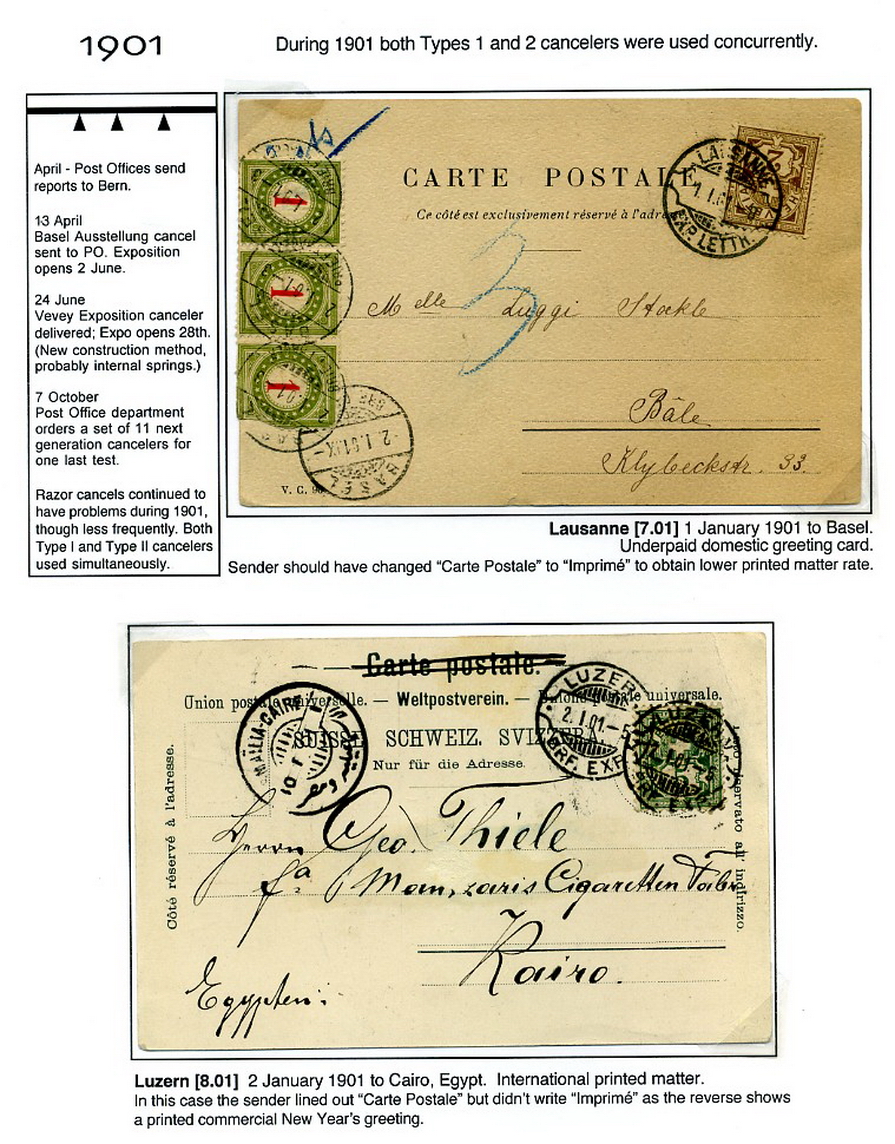 1901
During 1901 both Types 1 and 2 cancelers were used concurrently.
April - Post Offices send
reports to Bern.
13 April
Basel Ausstellung cancel
sent to PO. Exposition
opens 2 June.
24 June
Vevey Exposition canceler
delivered; Expo opens 28th.
(New construction method,
probably internal springs.)
7 October
Post Office department
orders a set of 11 next
generation cancelers for
one last test.
Razor cancels continued to
have problems during 1901,
though less frequently. Both
Type I and Type II cancelers
used simultaneously.
CARTE POSTALE
Ce côté est exclusivement réservé à l'adre
LAUSANNE
1.I.01
EXP. LETTR.
1
1
1
3
Melle Luggi Stockle
Bâle
Klybeckstr. 33.
2.I.01.IX-
BASEL
V. C.
Lausanne [7.01] 1 January 1901 to Basel.
Underpaid domestic greeting card.
Sender should have changed “Carte Postale” to “Imprimé” to obtain lower printed matter rate.
Carte postale.
Union postale universelle. — Weltpostverein. — Unione postale universale.
SUISSE. SCHWEIZ. SVIZZERA.
Nur für die Adresse.
Côté réservé à l'adresse.
riservato all' indirizzo.
LUZERN
2.I.01-5
BRF. EXP.
Herrn Geo. Thiele
fa Cigaretten Fabr
Kairo.
Egypten:
Luzern [8.01] 2 January 1901 to Cairo, Egypt. International printed matter.
In this case the sender lined out “Carte Postale” but didn't write “Imprimé” as the reverse shows
a printed commercial New Year's greeting.